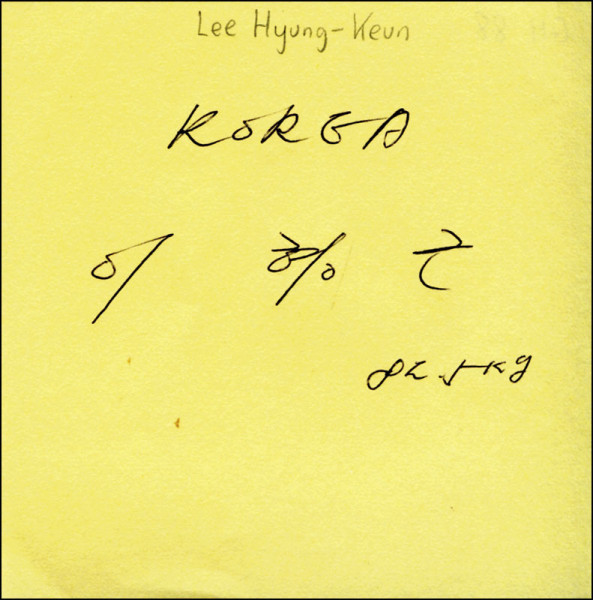 Lee Hyung-Keun
KOREA
이 형 근
82.5 kg